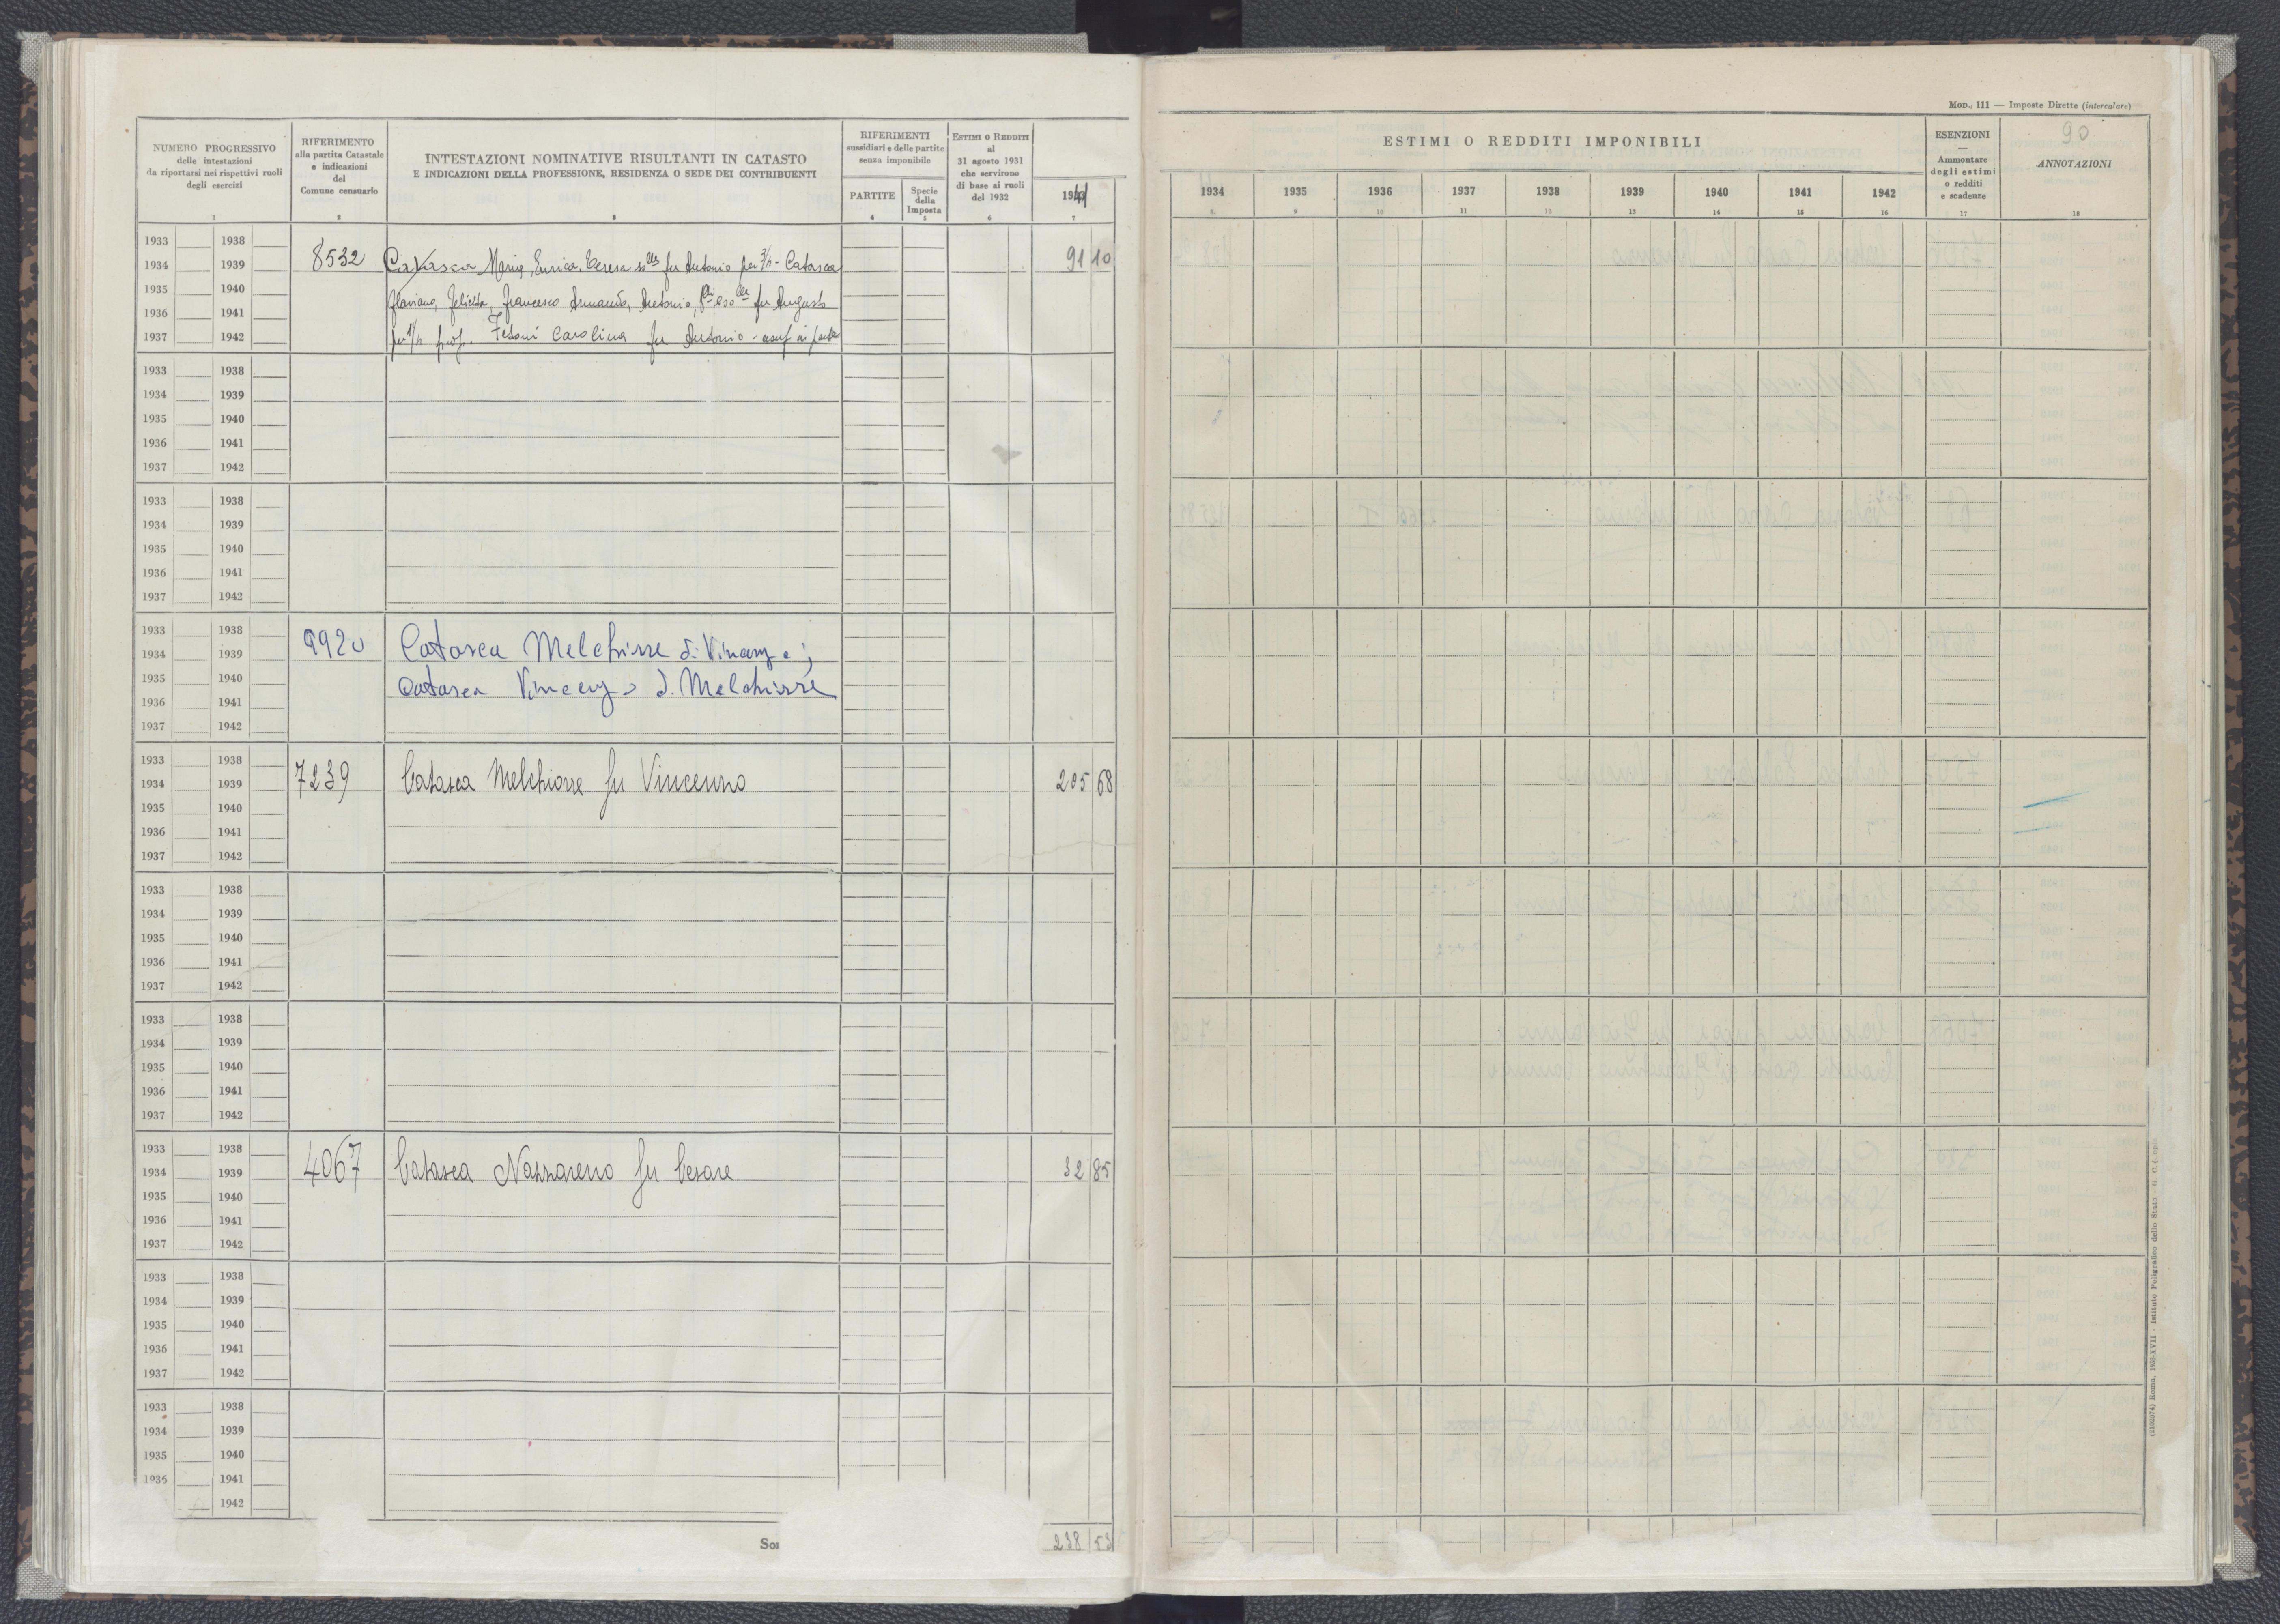 MOD. 111 — Imposte Dirette (intercalare)
90
NUMERO PROGRESSIVO
delle intestazioni
da riportarsi nei rispettivi ruoli
degli esercizi
1
RIFERIMENTO
alla partita Catastale
e indicazioni
del
Comune censuario
2
INTESTAZIONI NOMINATIVE RISULTANTI IN CATASTO
E INDICAZIONI DELLA PROFESSIONE, RESIDENZA O SEDE DEI CONTRIBUENTI
3
RIFERIMENTI
sussidiari e delle partite
senza imponibile
PARTITE
4
Specie
della
Imposta
5
ESTIMI O REDDITI
al
31 agosto 1931
che servirono
di base ai ruoli
del 1932
6
1944
7
ESTIMI O REDDITI IMPONIBILI
1934 1935 1936 1937 1938 1939 1940 1941 1942
8 9 10 11 12 13 14 15 16
ESENZIONI
—
Ammontare
degli estimi
o redditi
e scadenze
17
ANNOTAZIONI
18
1933 1938
1934 1939 8532 Catasca Maria, Enrica, Teresa so lle fu Antonio per 3/4 - Catasca 91 10
1935 1940 Flaviano, Felicetta, Francesco Armando, Antonio, f lli e so lle fu Augusto
1936 1941
1937 1942 per 1/4 prop. Fetoni Carolina fu Antonio - usuf in parte
1933 1938
1934 1939
1935 1940
1936 1941
1937 1942
1933 1938
1934 1939
1935 1940
1936 1941
1937 1942
1933 1938 9920 Catasca Melchiorre di Vincenzo;
1934 1939
1935 1940 Catasca Vincenzo d. Melchiorre
1936 1941
1937 1942
1933 1938
1934 1939 7239 Catasca Melchiorre fu Vincenzo 205 68
1935 1940
1936 1941
1937 1942
1933 1938
1934 1939
1935 1940
1936 1941
1937 1942
1933 1938
1934 1939
1935 1940
1936 1941
1937 1942
1933 1938
1934 1939 4067 Catasca Nazzareno fu Cesare 32 85
1935 1940
1936 1941
1937 1942
1933 1938
1934 1939
1935 1940
1936 1941
1937 1942
1933 1938
1934 1939
1935 1940
1936 1941
1942
238 53